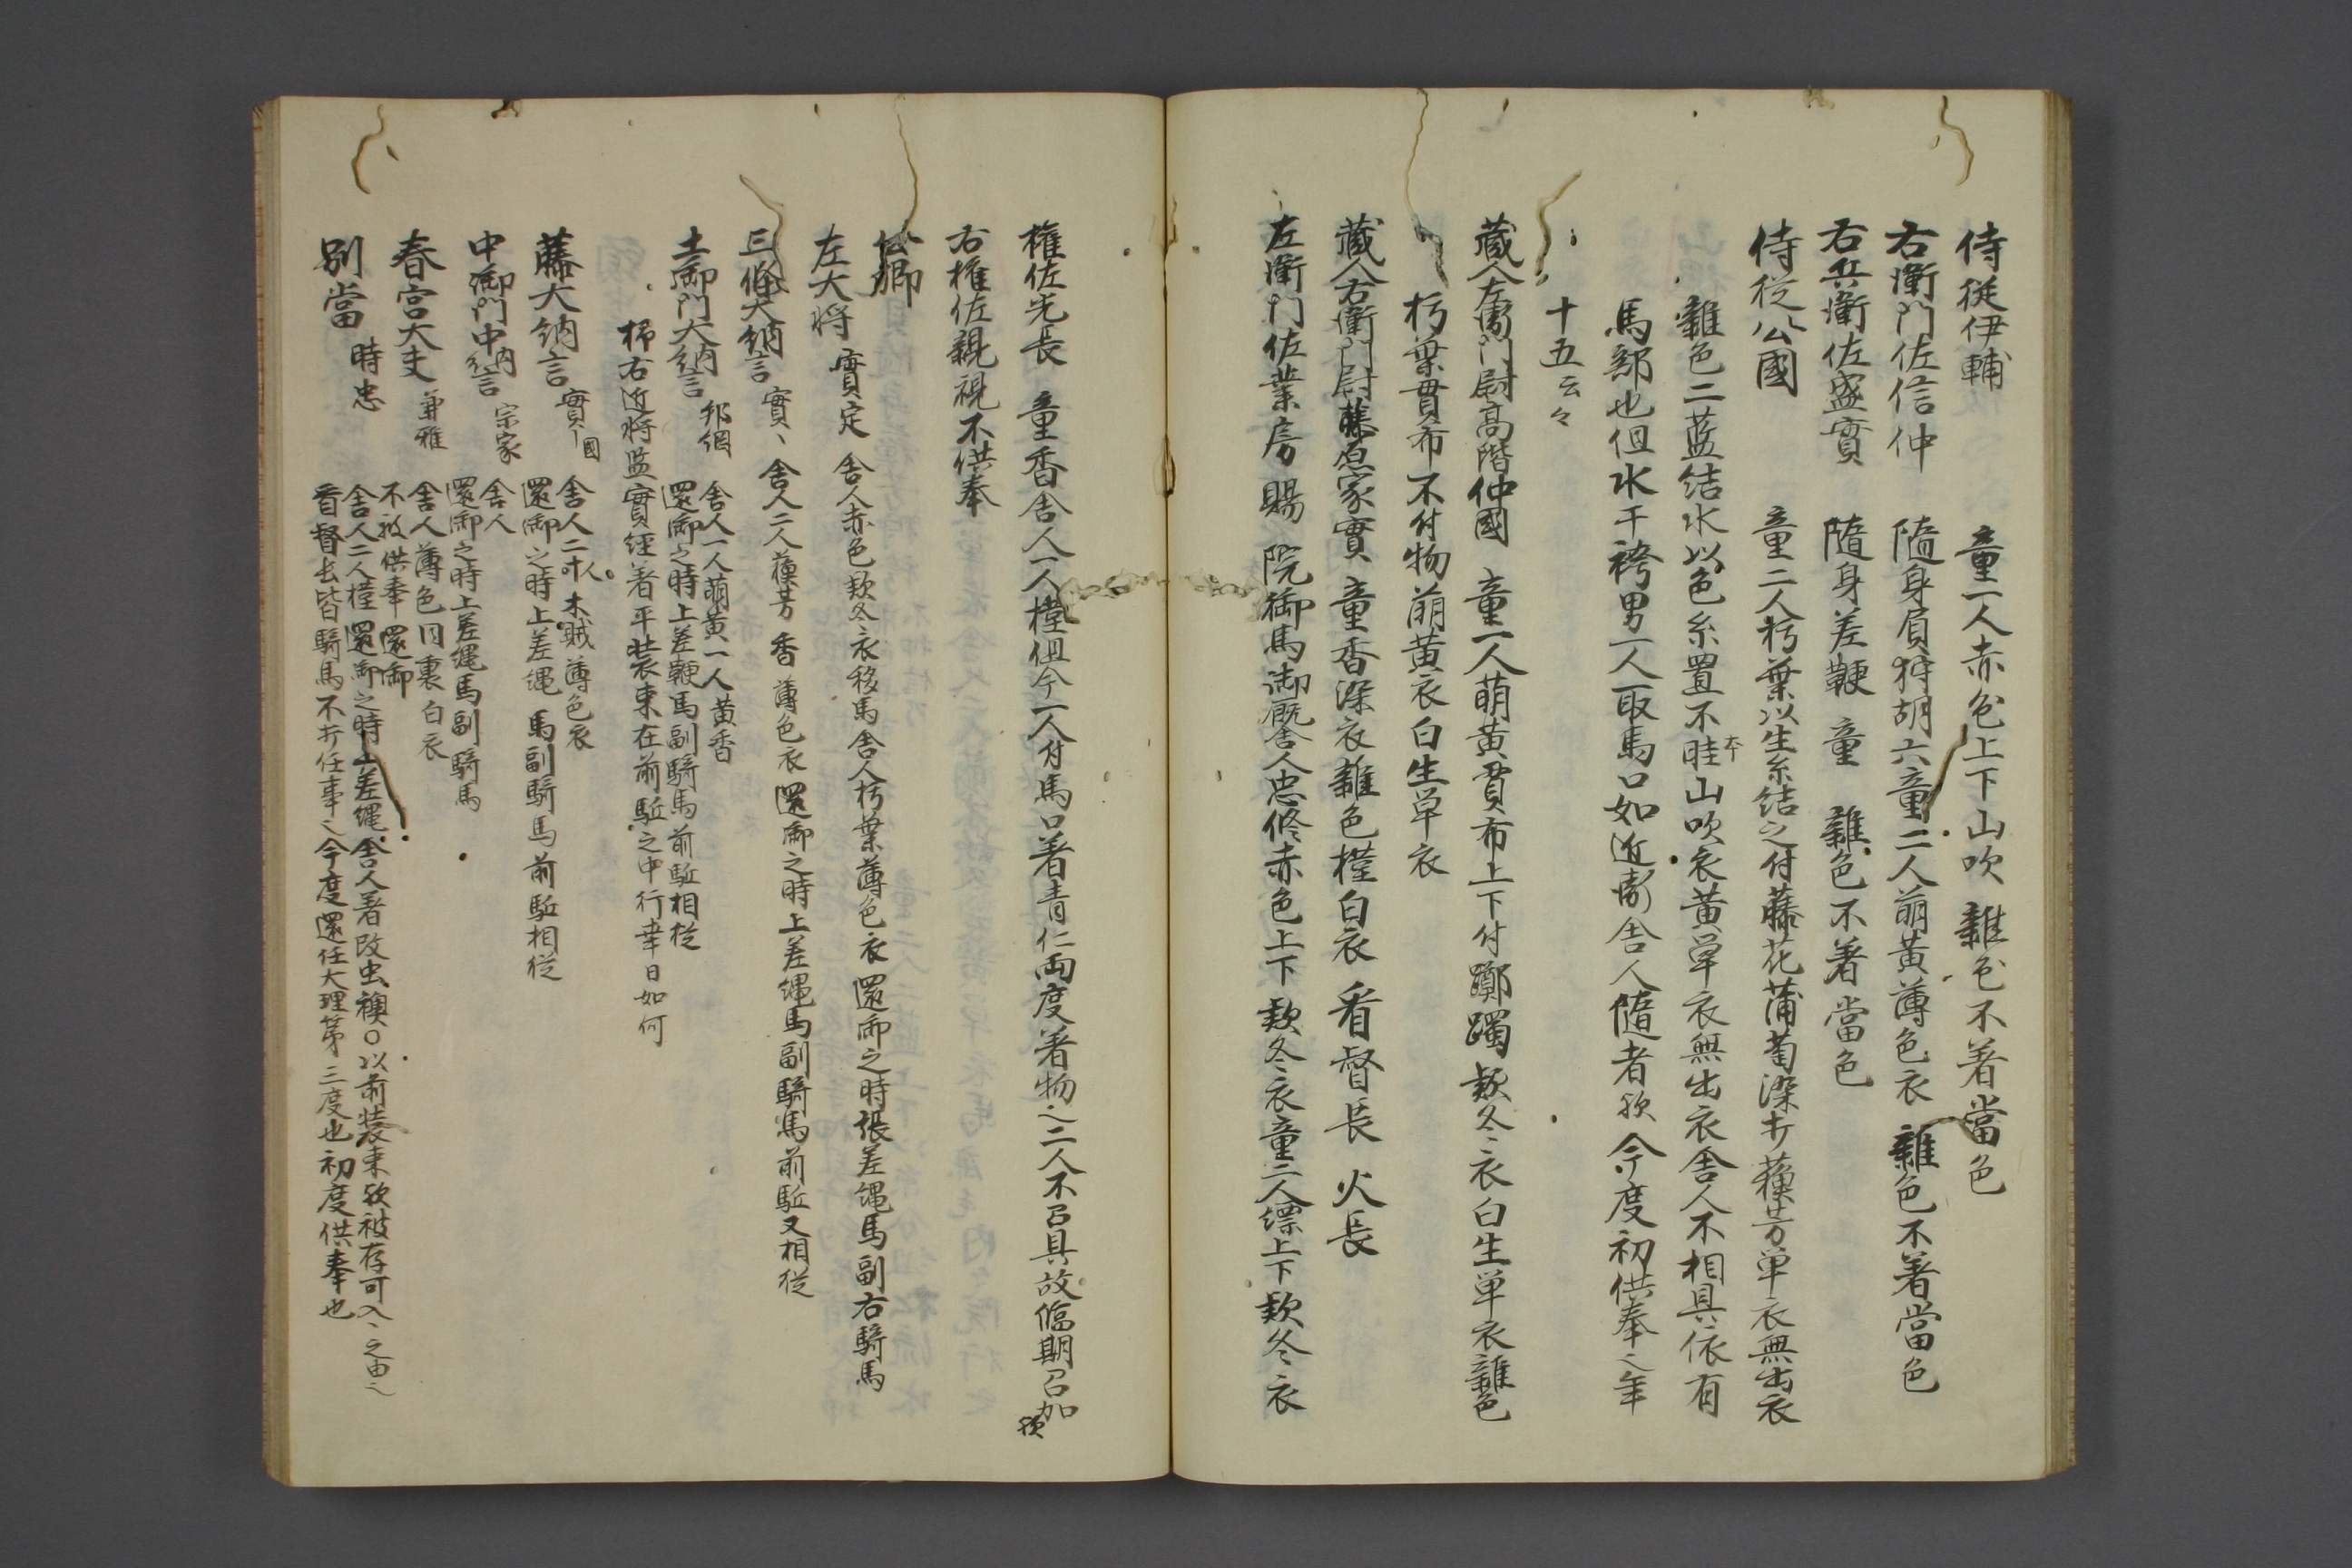 侍従伊輔　童一人赤色上下山吹　雜色不著當色
右衛門佐信仲　隨身肩狩胡六童二人萌黄薄色衣　雜色不著當色
右兵衛佐盛實　隨身差鞭　童　雜色不著當色
侍従公國　童二人朽葉以生糸結之付藤花蒲萄染打蘓芳単衣無出衣
雜色二藍結水以色糸置不畦本山吹衣黄単衣無出衣舎人不相具依有
馬部也但水干袴男一人取馬口如近衛舎人隨者歟　今度初供奉之年
十五云々
藏人左衛門尉高階仲國　童一人萌黄貫布上下付躑躅款冬衣白生単衣雜色
朽葉貫布不付物萌黄衣白生単衣
藏人右衛門尉藤原家實　童香染衣雜色橦白衣　看督長　火長
左衛門佐業房　賜　院御馬御厩舎人忠修赤色上下　款冬衣童二人縹上下款冬衣
權佐光長　童香舎人一人橦但今一人付馬口著青仁両度著物之二人不召具故臨期召加歟
右權佐親視不供奉
公卿
左大将　實定　舎人赤色款冬衣移馬舎人朽葉薄色衣　還御之時張差縄馬副右騎馬
三條大納言　實、　舎人二人蘓芳　香　薄色衣　還御之時上差縄馬副騎馬前駈又相従
土御門大納言　邦綱　舎人一人萌黄一人黄香
還御之時上差鞭馬副騎馬前駈相従
柹右近将監實経著平裝束在前駈之中行幸日如何
藤大納言　實國　舎人二人木賊薄色衣
還御之時上差縄　馬副騎馬前駈相従
中御門中納言　宗家　舎人
還御之時上差縄馬副騎馬
春宮大夫　兼雅　舎人薄色同裏白衣
不被供奉　還御
別當　時忠　舎人二人橦還御之時上差縄舎人著改虫襖〇以前裝束欤被存可入、之由之
看督長皆騎馬不打任事之今度還任大理第三度也初度供奉也